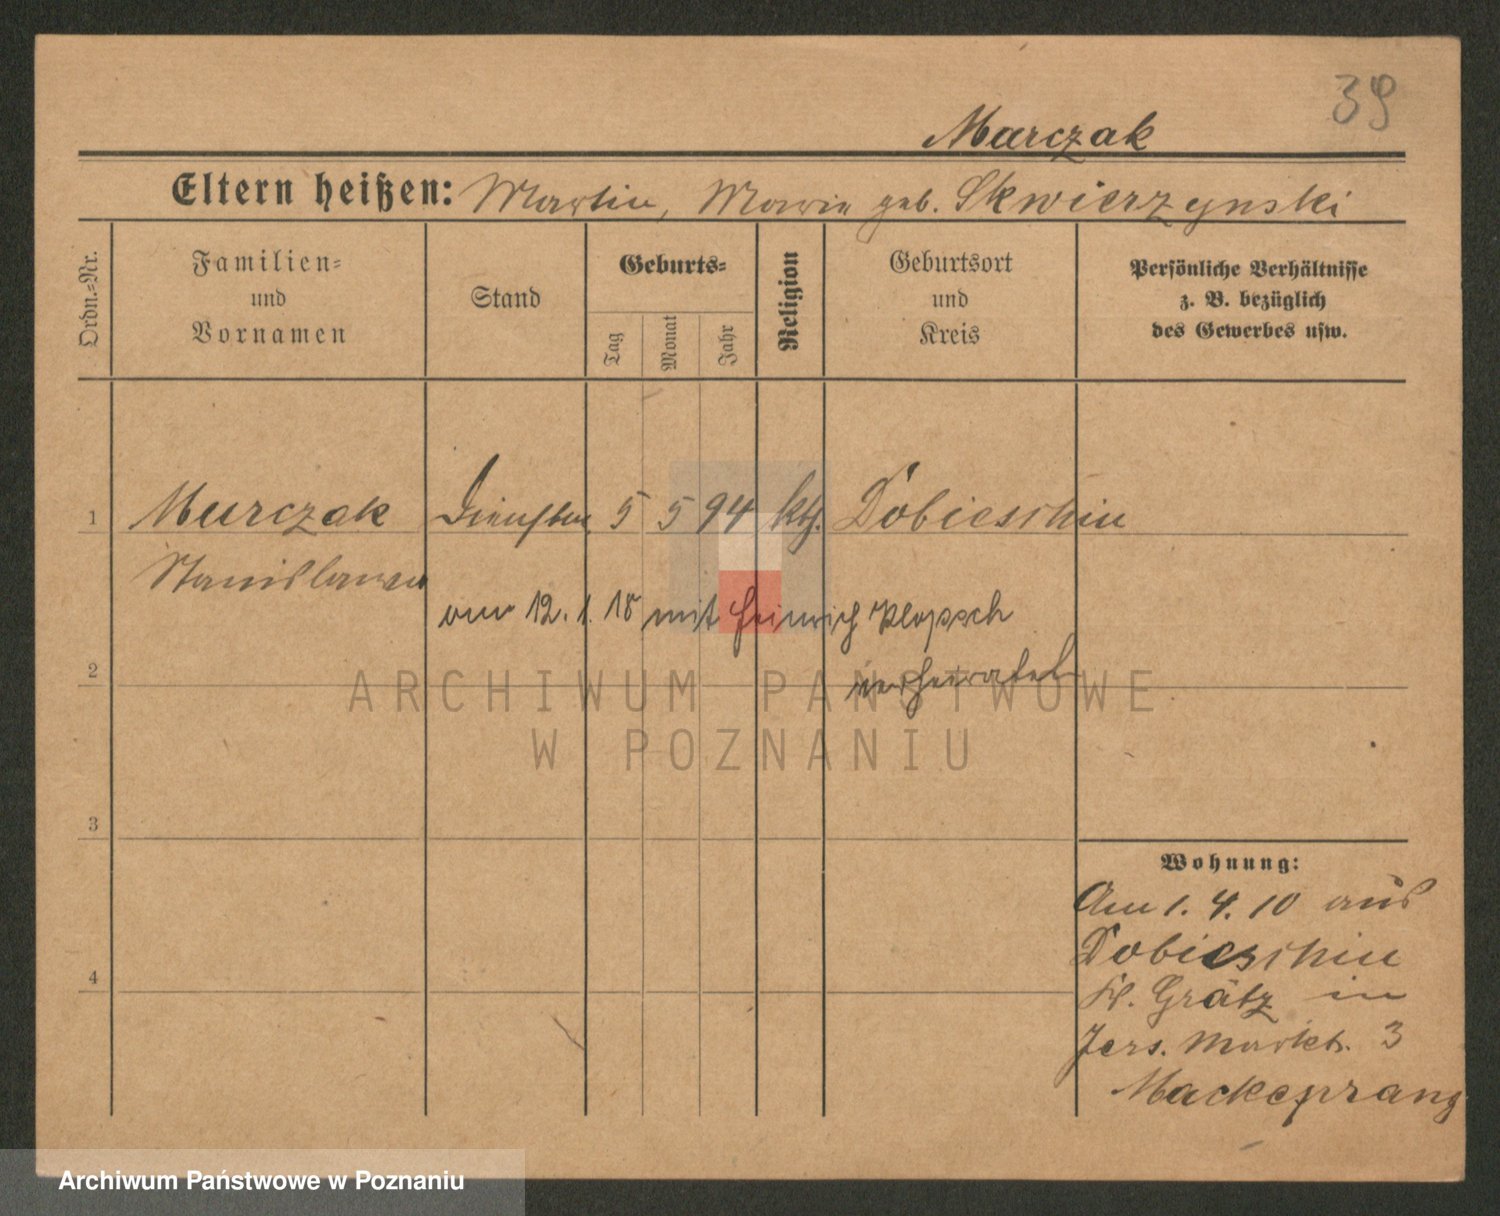 39
Marczak
Eltern heißen: Martin, Marie geb. Skwierzynski
Ordn.=Nr.
Familien=
und
Vornamen
Stand
Geburts=
Tag
Monat
Jahr
Religion
Geburtsort
und
Kreis
Persönliche Verhältnisse
z. B. bezüglich
des Gewerbes usw.
1 Marczak 5 5 94 kth. Dobieschin
Stanislawa
am 12. 1. 18 mit Heinrich Klopsch
verheiratet
2
3
4
Wohnung:
Am 1. 4. 10 aus
Dobieschin
Kr. Grätz in
Jers. Marktstr. 3
Mackeprang
ARCHIWUM PAŃSTWOWE
W POZNANIU
Archiwum Państwowe w Poznaniu